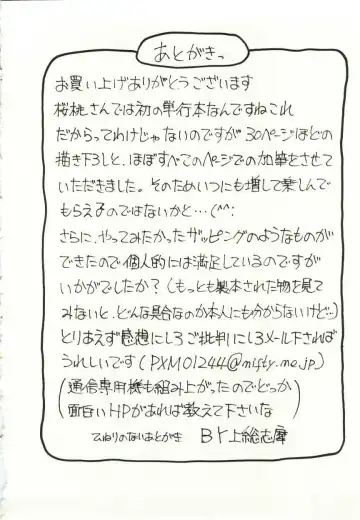 あとがきっ
お買い上げありがとうございます
桜桃さんでは初の単行本なんですねこれ
だからってわけじゃないのですが30ページほどの
描き下ろしと、ほぼすべてのページでの加筆をさせて
いただきました。そのためいつにも増して楽しんで
もらえるのではないかと…(^^;
さらに、やってみたかったザッピングのようなものが
できたので個人的には満足しているのですが
いかがでしたか？(もっとも製本された物を見て
みないと、どんな具合なのか本人にも分からないけど…)
とりあえず感想にしろご批判にしろメール下されば
うれしいです(PXM01244@nifty.ne.jp)
(通信専用機も組み上がったのでどっか
面白いHPがあれば教えて下さいな)
ひねりのないあとがき BY上総志摩